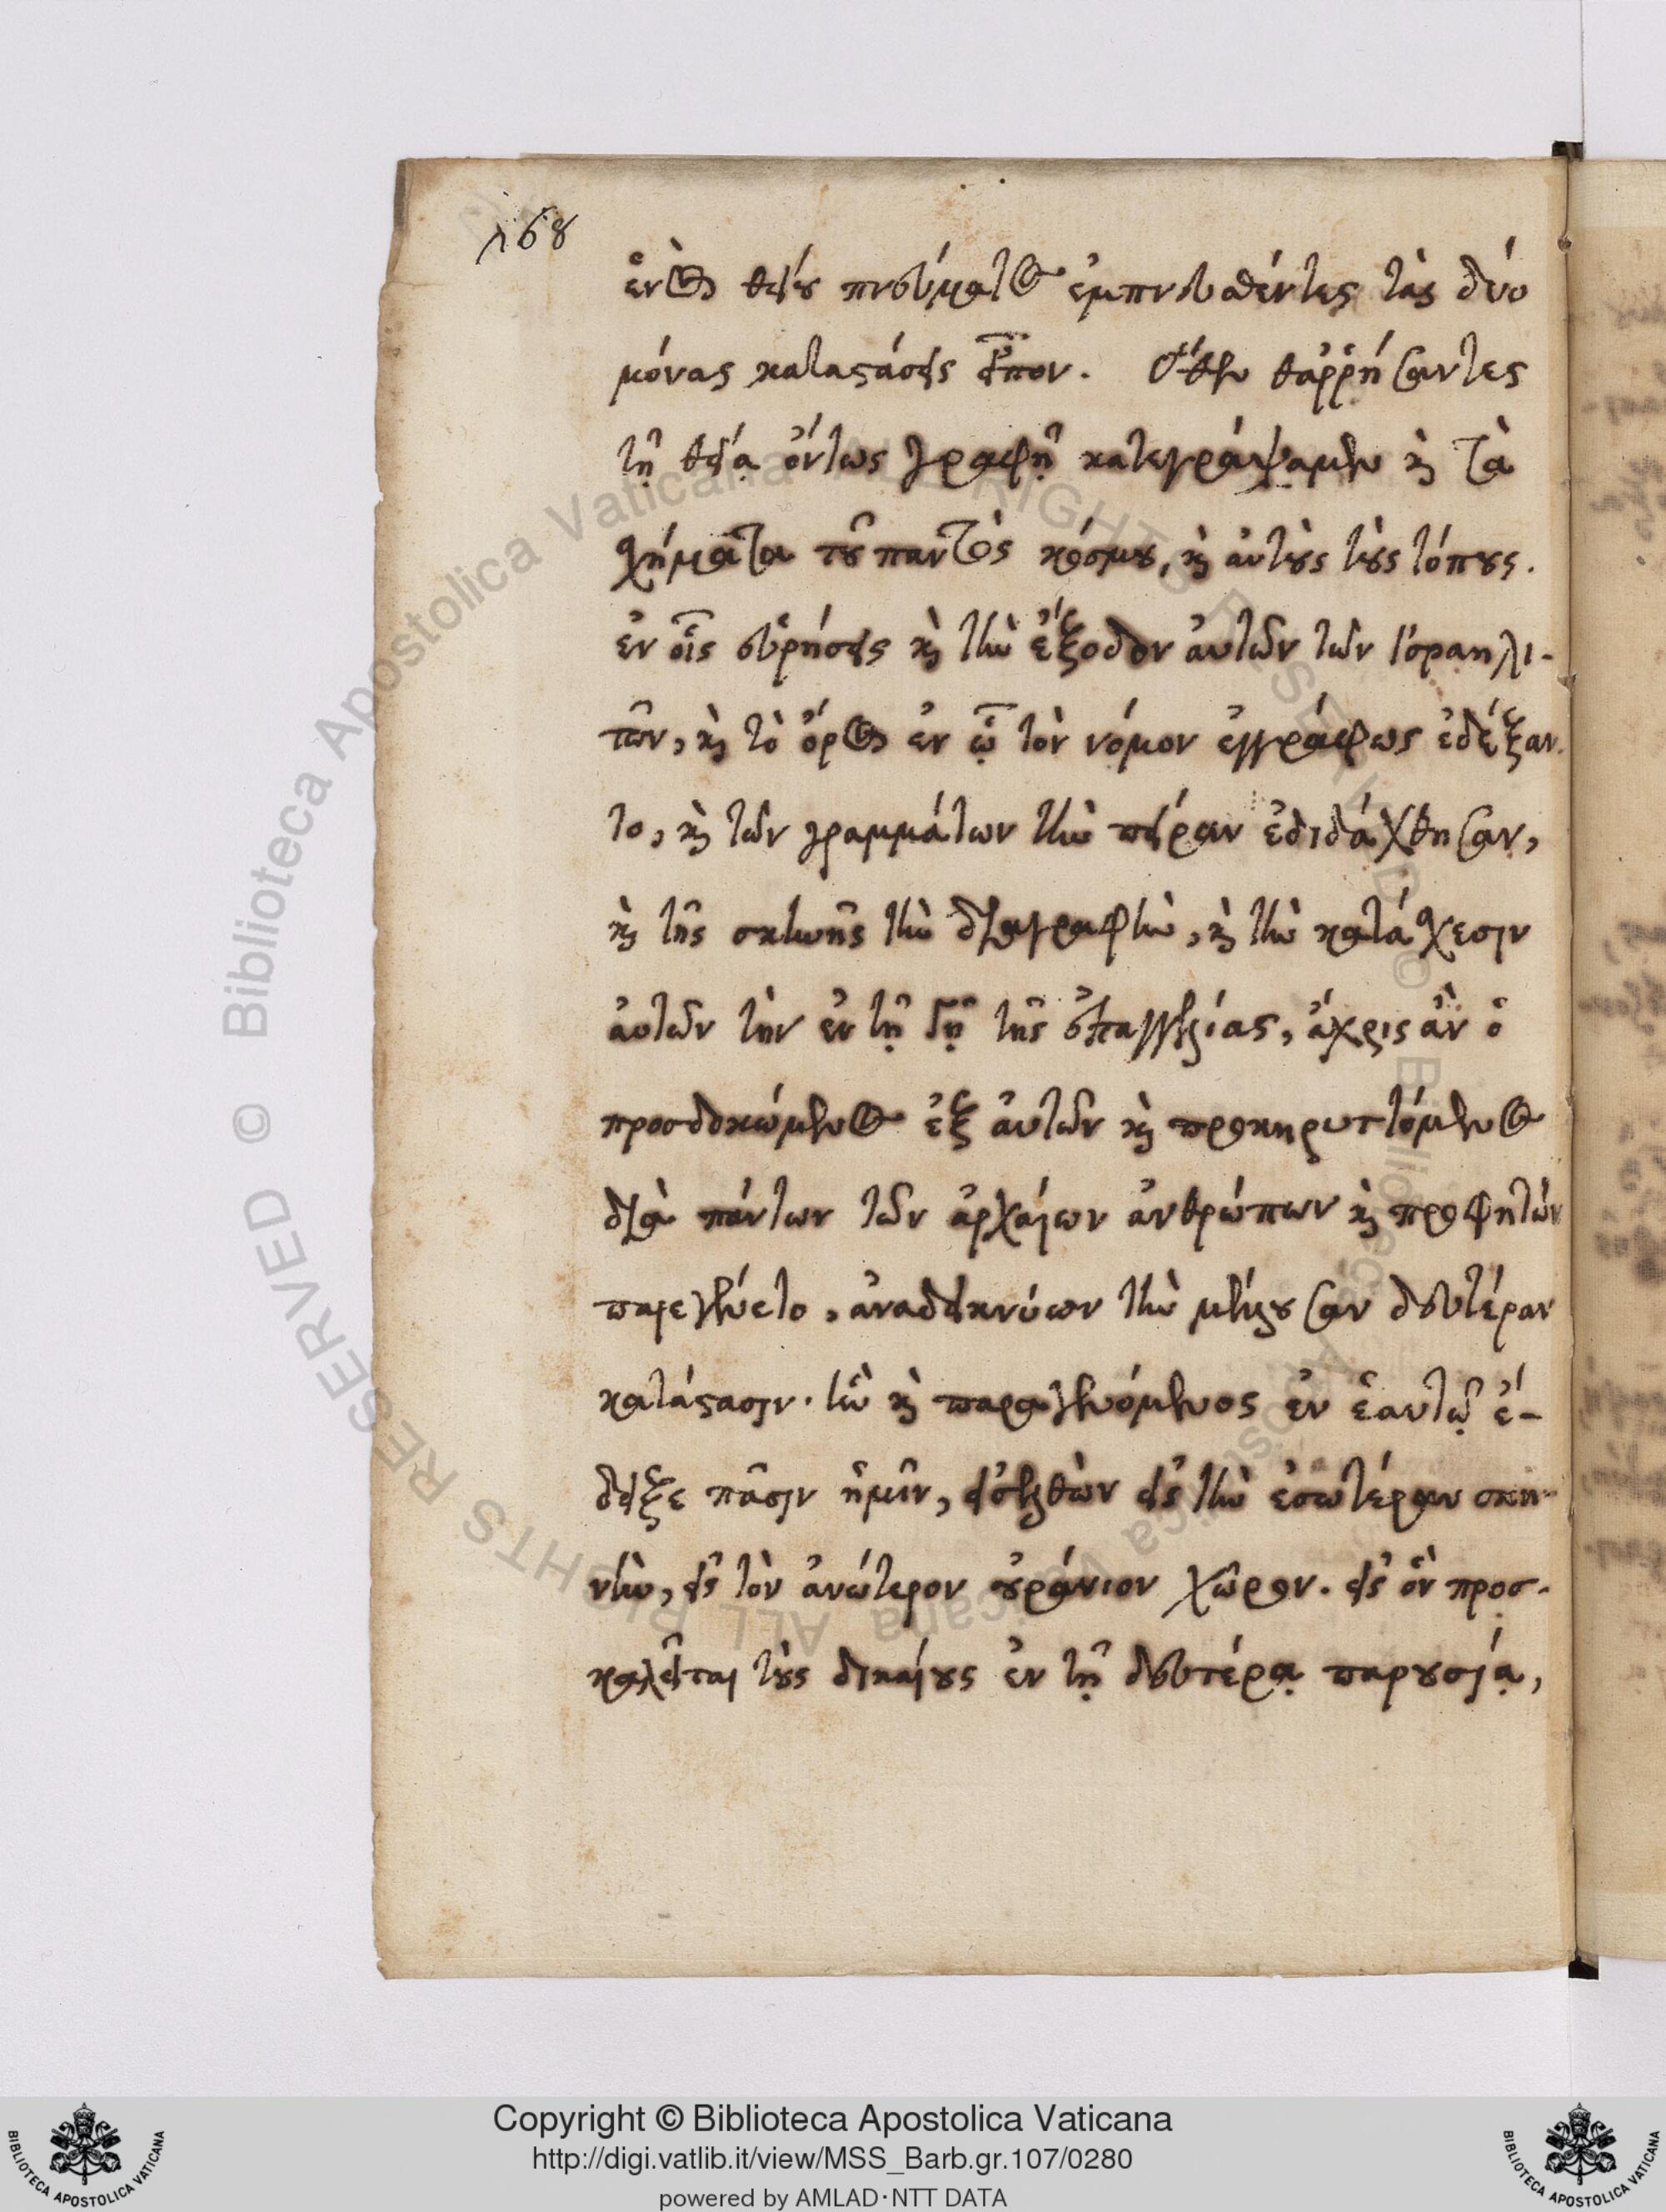 168
ἑνὸς θείου πνεύματος ἐμπνευσθέντες τὰς δύο
μόνας καταστάσεις εἶπον. Ὅθεν θαῤῥήσαντες
τῇ θείᾳ ὄντως γραφῇ κατεγράψαμεν καὶ τὰ
σχήματα τοῦ παντὸς κόσμου, καὶ αὐτοὺς τοὺς τόπους.
ἐν οἷς εὑρήσεις καὶ τὴν ἔξοδον αὐτῶν τῶν Ἰσραηλι-
τῶν, καὶ τὸ ὄρος ἐν ᾧ τὸν νόμον ἐγγράφως ἐδέξαν-
το, καὶ τῶν γραμμάτων τὴν πεῖραν ἐδιδάχθησαν,
καὶ τῆς σκηνῆς τὴν διαγραφὴν, καὶ τὴν κατάσχεσιν
αὐτῶν τὴν ἐν τῇ γῇ τῆς ἐπαγγελίας, ἄχρις ἂν ὁ
προσδοκώμενος ἐξ αὐτῶν καὶ προκηρυττόμενος
διὰ πάντων τῶν ἀρχαίων ἀνθρώπων καὶ προφητῶν
παρεγένετο, ἀναδεικνύων τὴν μέλλουσαν δευτέραν
κατάστασιν. ἣν καὶ παραγενόμενος ἐν ἑαυτῷ ἔ-
δειξε πᾶσιν ἡμῖν, εἰσελθὼν εἰς τὴν ἐσωτέραν σκη-
νὴν, εἰς τὸν ἀνώτερον οὐράνιον χῶρον. εἰς ὃν προσ-
καλεῖται τοὺς δικαίους ἐν τῇ δευτέρᾳ παρουσίᾳ,
© Biblioteca Apostolica Vaticana ALL RIGHTS RESERVED © Biblioteca Apostolica Vaticana ALL RIGHTS RESERVED
BIBLIOTECA APOSTOLICA VATICANA
Copyright © Biblioteca Apostolica Vaticana
http://digi.vatlib.it/view/MSS_Barb.gr.107/0280
powered by AMLAD·NTT DATA
BIBLIOTECA APOSTOLICA VATICANA